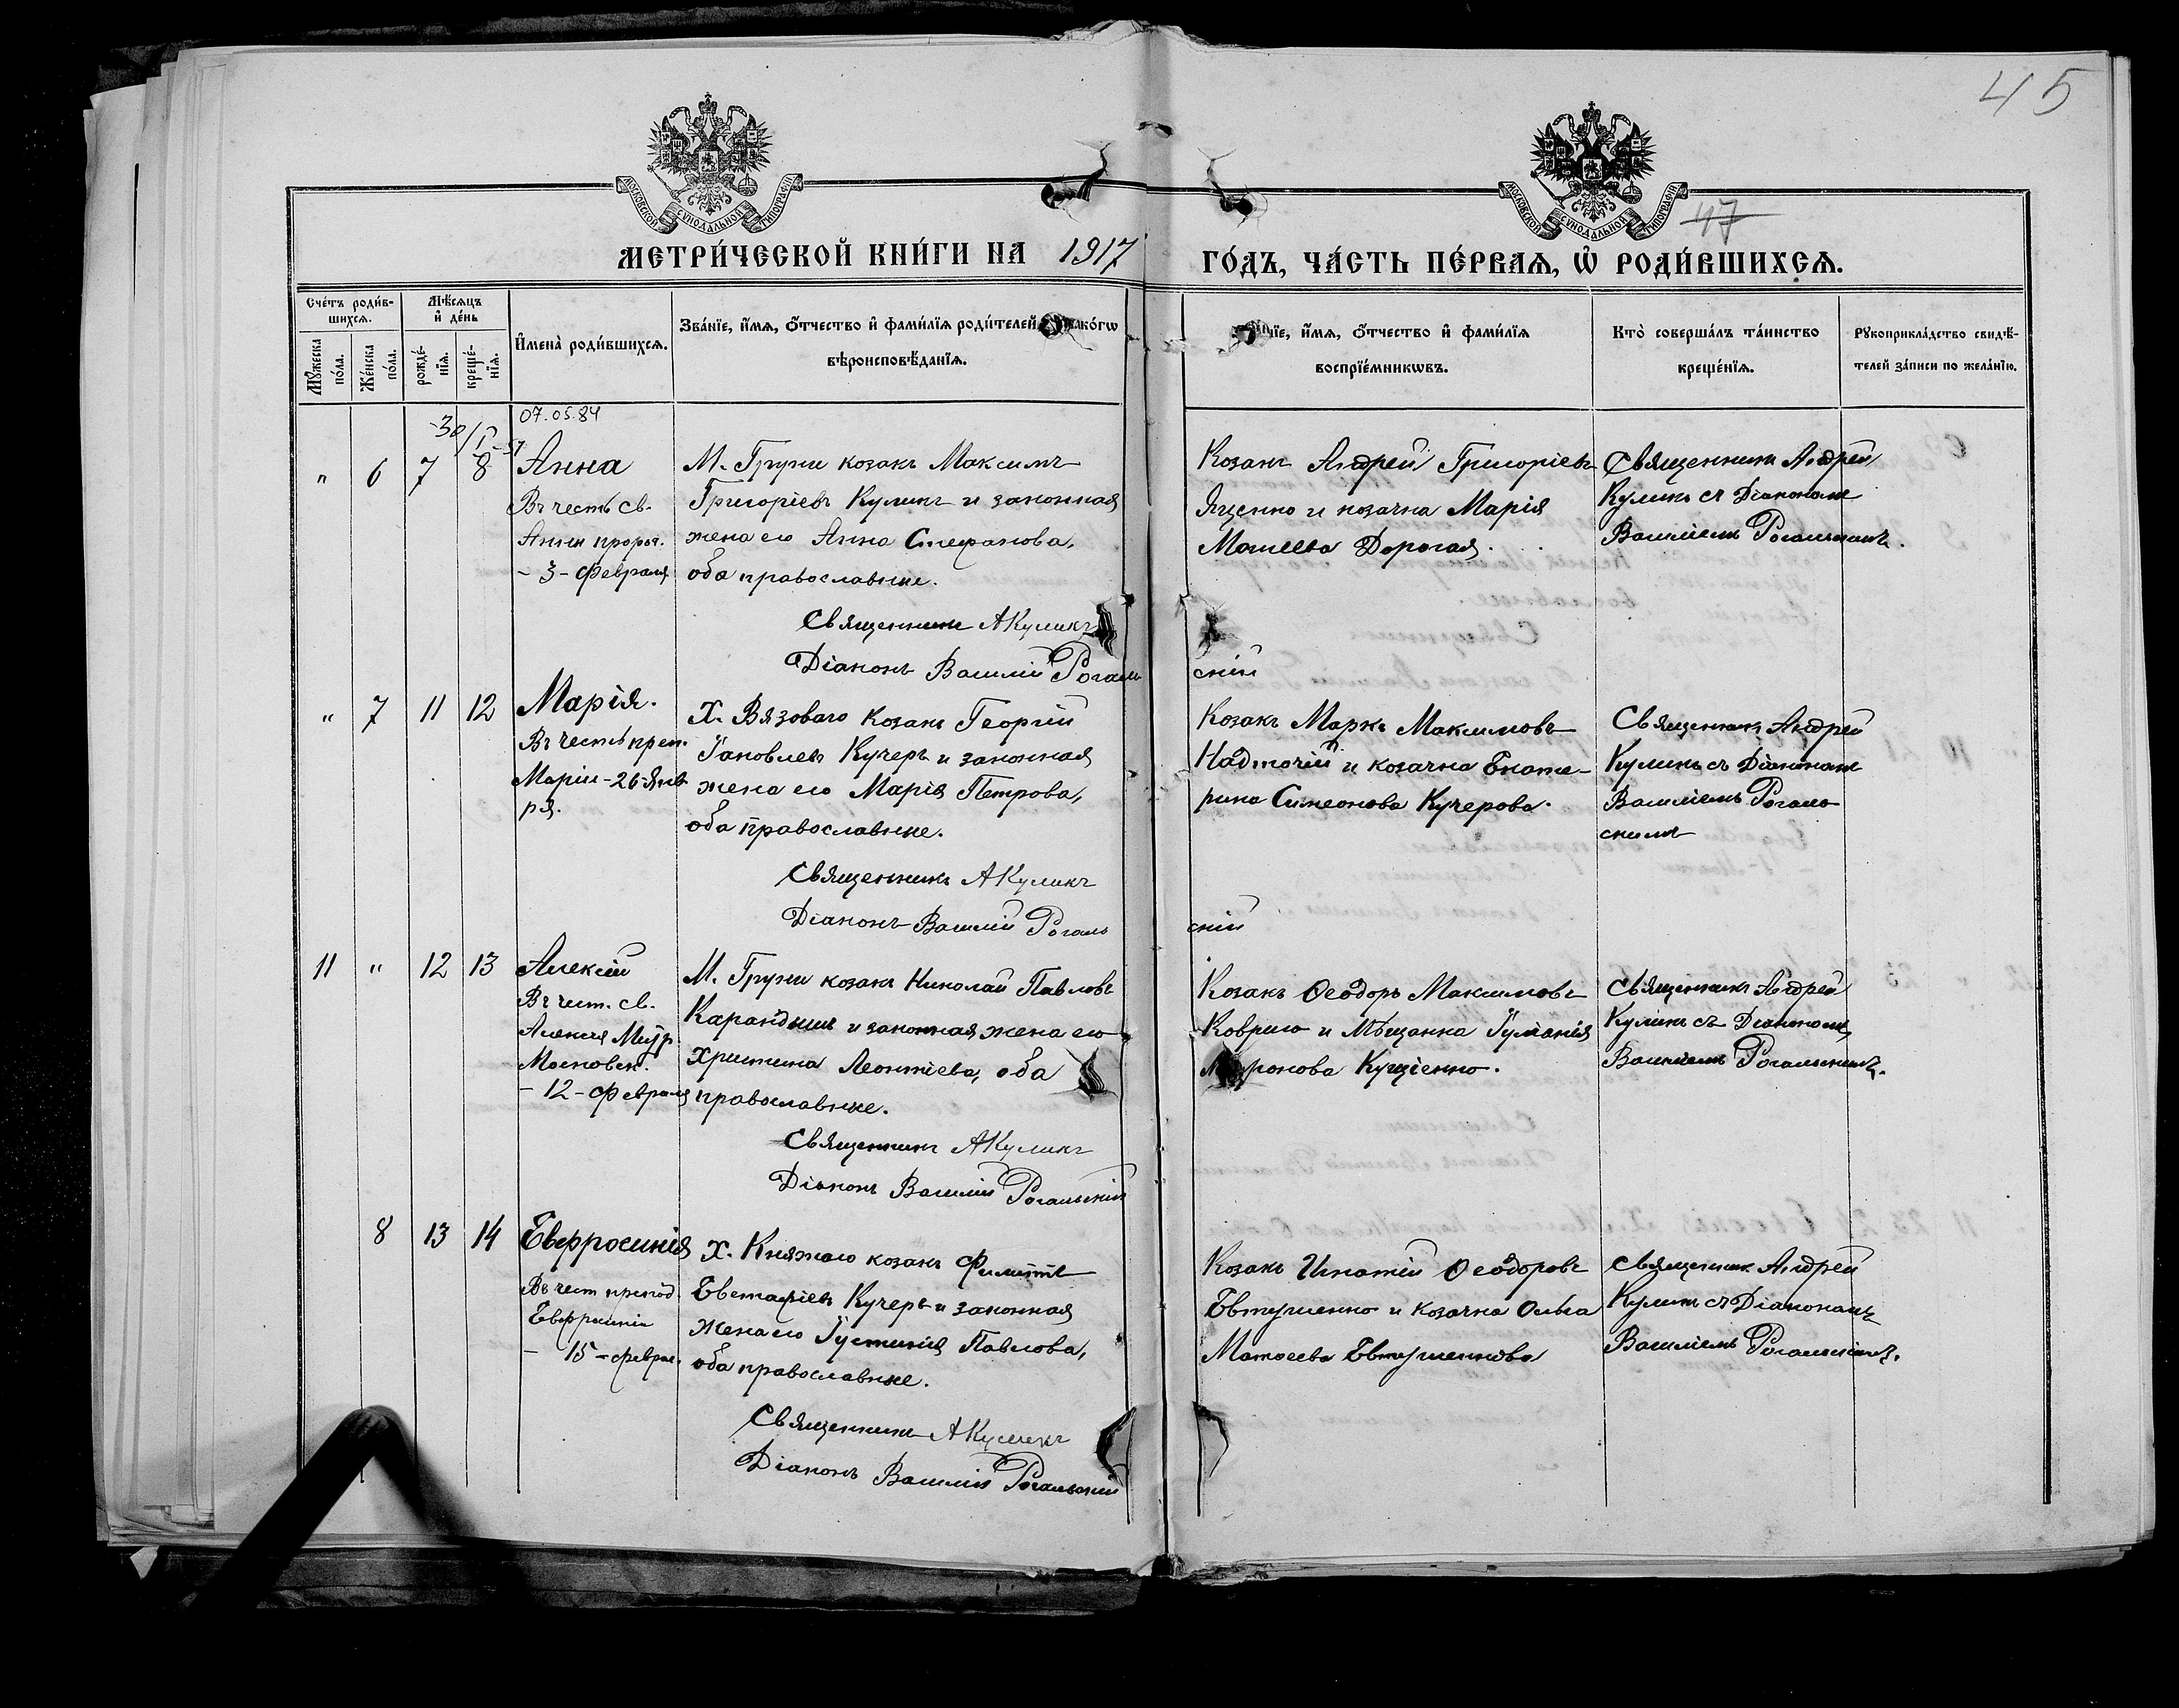 45
МОСКОВСКОЙ СУНОДАЛЬНОЙ ТИПОГРАФІИ
МОСКОВСКОЙ СУНОДАЛЬНОЙ ТИПОГРАФІИ
47
МЕТРИ́ЧЕСКОЙ КНИ́ГИ НА 1917
ГО́ДЪ, ЧА́СТЬ ПЕ́РВАЯ, Ѡ҆ РОДИ́ВШИХСЯ.
Сче́тъ роди́в-
шихсѧ.
Мѣ́сѧцъ
и҆ де́нь
Мꙋ́жеска
по́ла.
Же́нска
по́ла.
рожде́-
нїѧ.
креще́-
нїѧ.
И҆мена̀ роди́вшихсѧ.
Зва́нїе, и҆́мѧ, ѻ҆́тчество и҆ фами́лїѧ роди́телей
вѣроисповѣ́данїѧ.
и҆́мѧ, ѻ҆́тчество и҆ фами́лїѧ
воспрїе́мникѡвъ.
Кто̀ соверша́лъ та́инство
креще́нїѧ.
Рꙋкоприкла́дство свидѣ́-
телей за́писи по жела́нїю.
07.05.84
" 6 7 8 Анна
Въ честь св.
Анны пророч.
- 3 - Февраля
М. Груни козакъ Максимъ
Григоріевъ Куликъ и законная
жена его Анна Стефанова,
оба православные.
Священникъ АКуликъ
Діаконъ Василій Рогаль
скій
Козакъ Андрей Григоріевъ
Яценко и козачка Марія
Дорогая.
Священникъ Андрей
Куликъ съ Діакономъ
Василіемъ Рогальскимъ.
" 7 11 12 Марія.
Въ честь преп.
Маріи - 26 - Янв
ря.
Х. Вязоваго козакъ Георгій
Іаковлевъ Кучеръ и законная
жена его Марія Петрова,
оба православные.
Священникъ АКуликъ
Діаконъ Василій Рогаль
скій
Козакъ Маркъ Максимовъ
Надточій и козачка Екате-
рина Симеонова Кучерова.
Священникъ Андрей
Куликъ съ Діакономъ
Василіемъ Рогаль
скимъ
11 " 12 13 Алексій
Въ чест. св.
Алексія Митр.
Московск.
- 12 - Февраля
М. Груни козакъ Николай Павловъ
Карандышъ и законная жена его
Христина Леонтіева, оба
православные.
Священникъ АКуликъ
Діаконъ Василій Рогальскій
Козакъ Ѳеодоръ Максимовъ
Коврига и Мѣщанка Іуліанія
Кущіенко.
Священникъ Андрей
Куликъ съ Діакономъ
Василіемъ Рогальскимъ.
8 13 14 Евфросинія
Въ чест препод.
Евфросиніи
- 15 - февра.
Х. Княжаго козакъ Филиппъ
Евстафіевъ Кучеръ и законная
жена его Іустинія Павлова,
оба православные.
Священникъ АКуликъ
Діаконъ Василій Рогальскій
Козакъ Игнатій Ѳеодоровъ
Евтушенко и козачка Ольга
Матѳеева Евтушенкова
Священникъ Андрей
Куликъ съ Діакономъ
Василіемъ Рогальскимъ.